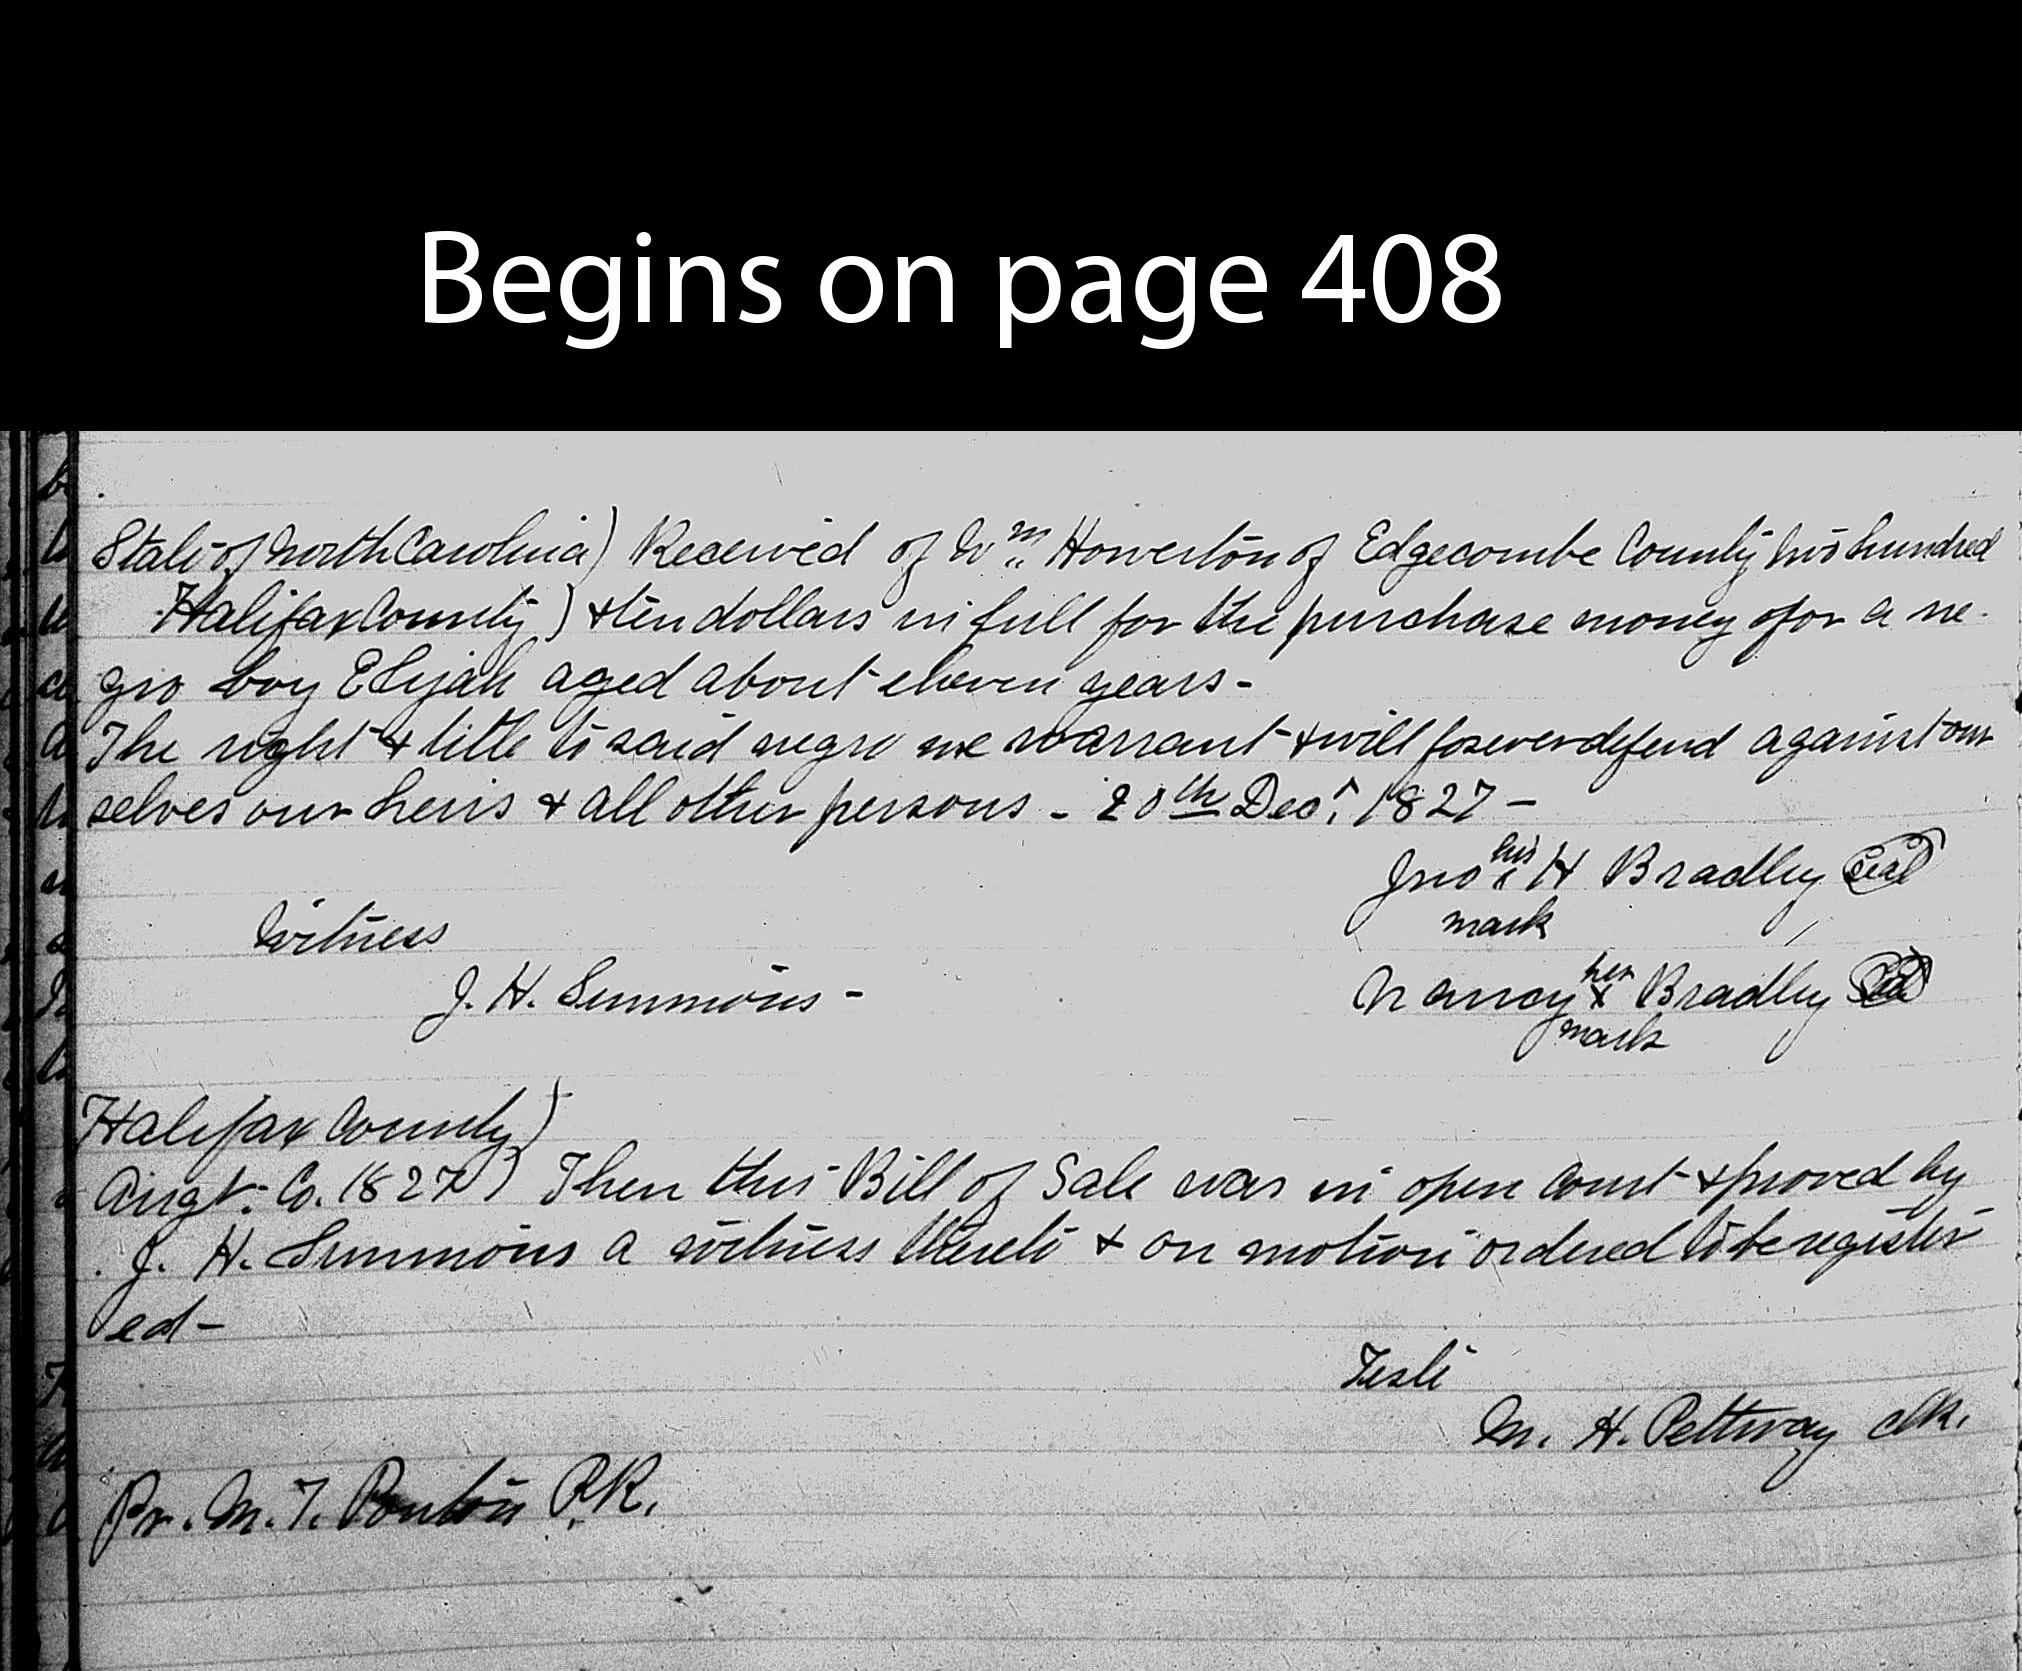 Begins on page 408
State of North Carolina) Received of Wm Howerton of Edgecombe County two hundred
Halifax County ) & ten dollars in full for the purchase money ofor a ne-
gro boy Elijah aged about eleven years-
The right & title to said negro we warrant & will forever defend against our
selves our heirs & all other persons - 20th Decr. 1827 -
his
Jno x H Bradley Seal
mark
Witness
her
J. H. Simmons - Nancy x Bradley Seal
mark
Halifax County)
Augt. Co. 1827) Then this Bill of Sale was in open Court & proved by
J. H. Simmons a witness thereto & on motion ordered to be register
ed-
Teste
M. H. Pettway clk.
Pr. M. T. Ponton P.R.